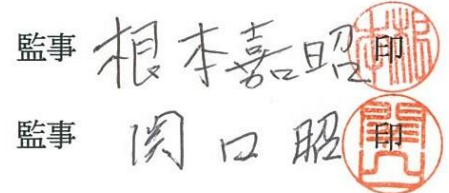 監事 根本嘉昭 印
監事 関口昭 印